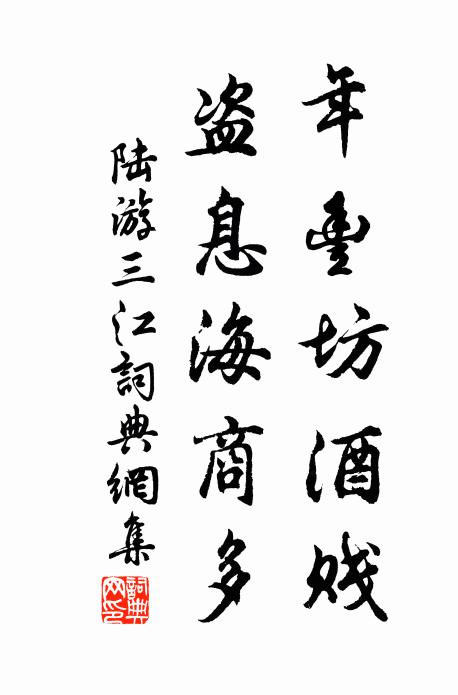 年豊坊酒賤
盗息海商多
陆游三江詞典網集
詞典网印